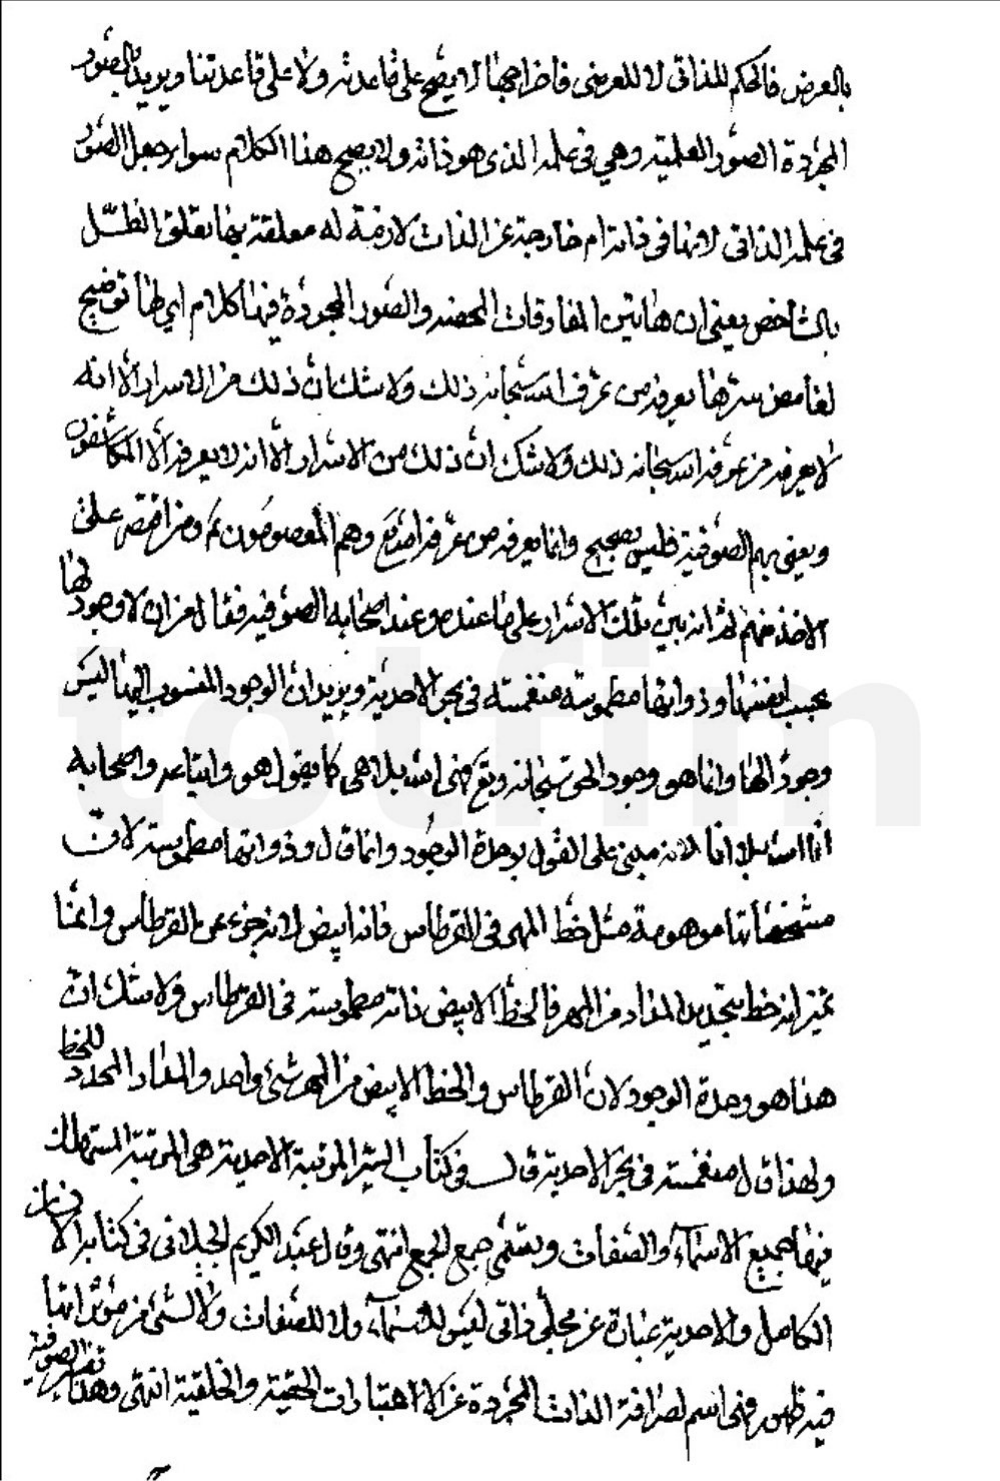 بالعرض فالحكم للذاتى لا للعرضى فاخراجهما لا يصح على قاعدته ولا على قاعدتنا ويريد بالصور
المجردة الصور العلمية وهي فى علمه الذى هو ذاته ولا يصح هذا الكلام سواء جعل الصور
فى علمه الذاتى لانها فى ذاته ام خارجة عن الذات لازمة له معلقة بها تعلق الظل
بالشاخص يعنى ان هاتين المفارقات المحضة والصور المجردة فيها كلام اى لها توضيح
لغامض سرها يعرفه من عرفه الله سبحانه ذلك ولا شك ان ذلك من الاسرار الا انه
لا يعرفه من عرفه الله سبحانه ذلك ولا شك ان ذلك من الاسرار الا انه لا يعرفه الا المكاشفون
ويعنى بهم الصوفية فليس بصحيح وانما يعرفه من عرفه الله وهم المعصومون ع ومن اقتصر على
الاخذ عنهم ثم انه بين تلك الاسرار على ما عنده وعند اصحابه الصوفية فقال من ان لا وجود لها
بحسب انفسها وذواتها مطموسة منغمسة فى بحر الاحدية ويريد ان الوجود المنسوب اليها ليس
وجودا لها وانما هو وجود الحق سبحانه وتع فهى الله بلا هى كما يقول هو واتباعه واصحابه
انا الله بلا انا لانه مبنى على القول بوحدة الوجود وانما قال وذواتها مطموسة لان
مشخصاتها موهومة مثل خط المهر فى القرطاس فانه ابيض لانه جزء من القرطاس وانما
تميز انه خط بتحديد المداد من المهر فالخط الابيض ذاته مطموسة فى القرطاس ولا شك ان
هذا هو وحدة الوجود لان القرطاس والخط الابيض من المهر شىء واحد والمداد المحدد للخط
ولهذا قال منغمسة فى بحر الاحدية قال فى كتاب السير المرتبة الاحدية هى المرتبة المستهلك
فيها جميع الاسماء والصفات ويسمى جمع الجمع انتهى وقال عبد الكريم الجيلانى فى كتابه الانسان
الكامل والاحدية عبارة عن مجلى ذاتى ليس للاسماء ولا للصفات ولا لشىء من مؤثراتها
فيه ظهور فهى اسم لصرافة الذات المجردة عن الاعتبارات الحقية والخلقية انتهى وهذا تعريف الصوفية